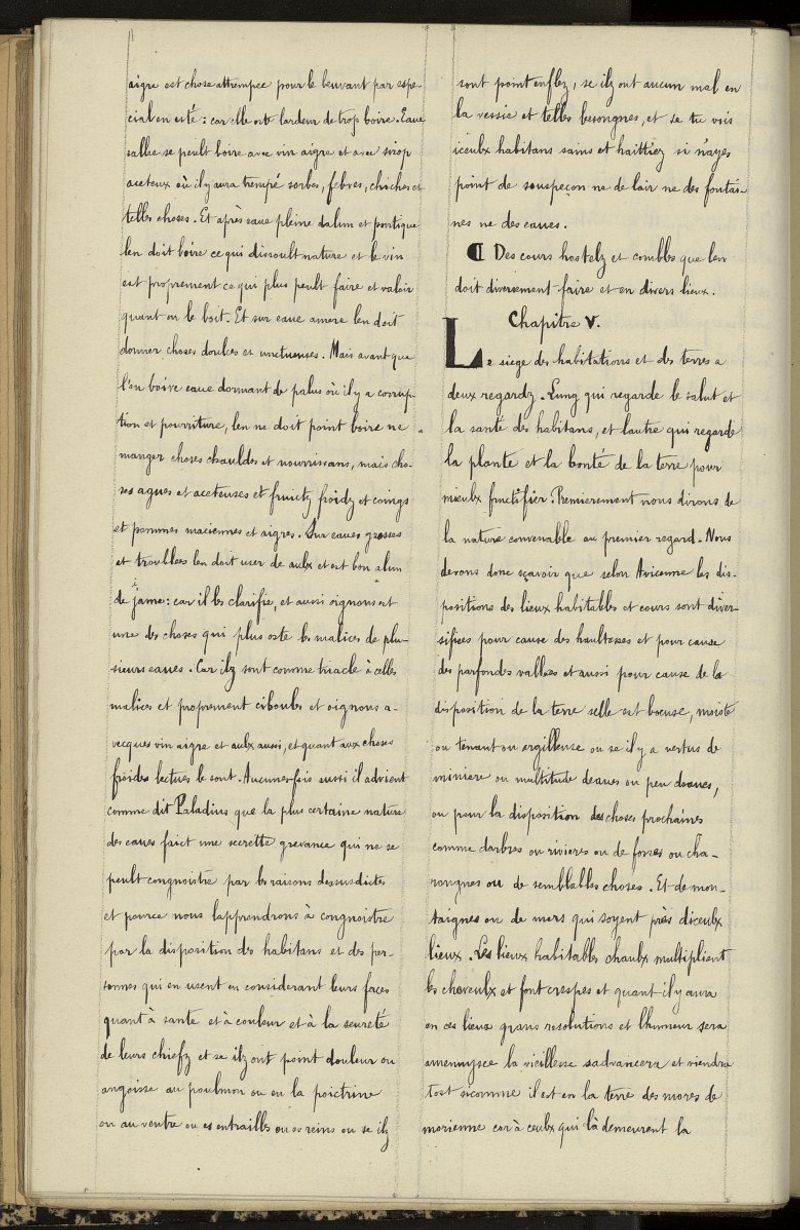 aigre est chose attrempee pour le beuvant par espe-
cial en esté : car elle oste lardeur de trop boire. Eaue
sallee se peult boire avec vin aigre et avec sirop
aceteux où il y aura trempé sorbes, febves, chiches et
telles choses. Et après eaue pleine dalun et pontique
len doit boire ce qui dissoult nature et le vin
est proprement ce qui plus peult faire et valoir
quant on le boit. Et sur eaue amere len doit
donner choses doulces et unctueuses. Mais avant que
l'on boive eaue dormant de palus où il y a corrup-
tion et pourriture, len ne doit point boire ne
manger choses chauldes et nourrissans, mais cho-
ses agues et aceteuses et fruictz froidz et coings
et pommes maciennes et aigres. Sur eaues grosses
et troublees len doit user de aulx et est bon alun
de jame : car il les clarifie, et aussi oignons est
une des choses qui plus oste les malices de plu-
sieurs eaues. Car ilz sont comme triacle à celles
malices et proprement ciboules et oignons a-
vecques vin aigre et aulx aussi, et quant aux choses
froides lectues le sont. Aucunes fois aussi il advient
comme dit Paladius que la plus certaine nature
des eaues faict une secrette grevance qui ne se
peult congnoistre par les raisons dessusdictes
et pource nous lapprendrons à congnoistre
par la disposition des habitans et des per-
sonnes qui en usent en considerant leurs faces
quant à sante et à couleur et à la seureté
de leurs chiefz et se ilz ont point douleur ou
angoisse au poulmon ou en la poictrine
ou au ventre ou es entrailles ou es reins ou se ilz
sont point enflez, se ilz ont aucun mal en
la vessie et telles besongnes, et se tu vois
iceulx habitans sains et haittiez si n'ayes
point de souspeçon ne de lair ne des fontai-
nes ne des eaues.
¶ Des cours hostelz et combles que len
doit diversement faire et en divers lieux.
Chapitre V.
Le siege des habitations et des terres a
deux regardz. Lung qui regarde le salut et
la santé des habitans, et lautre qui regarde
la plante et la bonté de la terre pour
mieulx fructifier. Premierement nous dirons de
la nature convenable au premier regard. Nous
devons donc sçavoir que selon Avicenne les dis-
positions des lieux habitables et cours sont diver-
sifiees pour cause des haultesses et pour cause
des parfondes vallees et aussi pour cause de la
disposition de la terre selle est boeuse, moiste
ou tenant ou argilleuse ou se il y a vertus de
miniere ou multitude deaues ou peu deaues,
ou pour la disposition des choses prochaines
comme darbres ou rivieres ou de fosses ou cha-
rongnes ou de semblables choses. Et de mon-
taignes ou de mers qui soyent près diceulx
lieux. Les lieux habitables chaulx multiplient
les cheveulx et font crespes et quant il y aura
en ces lieux grans resolutions et lhumeur sera
amenuysee la vieillesse sadvancera et viendra
tost sicomme il est en la terre des mores de
morienne car à ceulx qui là demeurent la